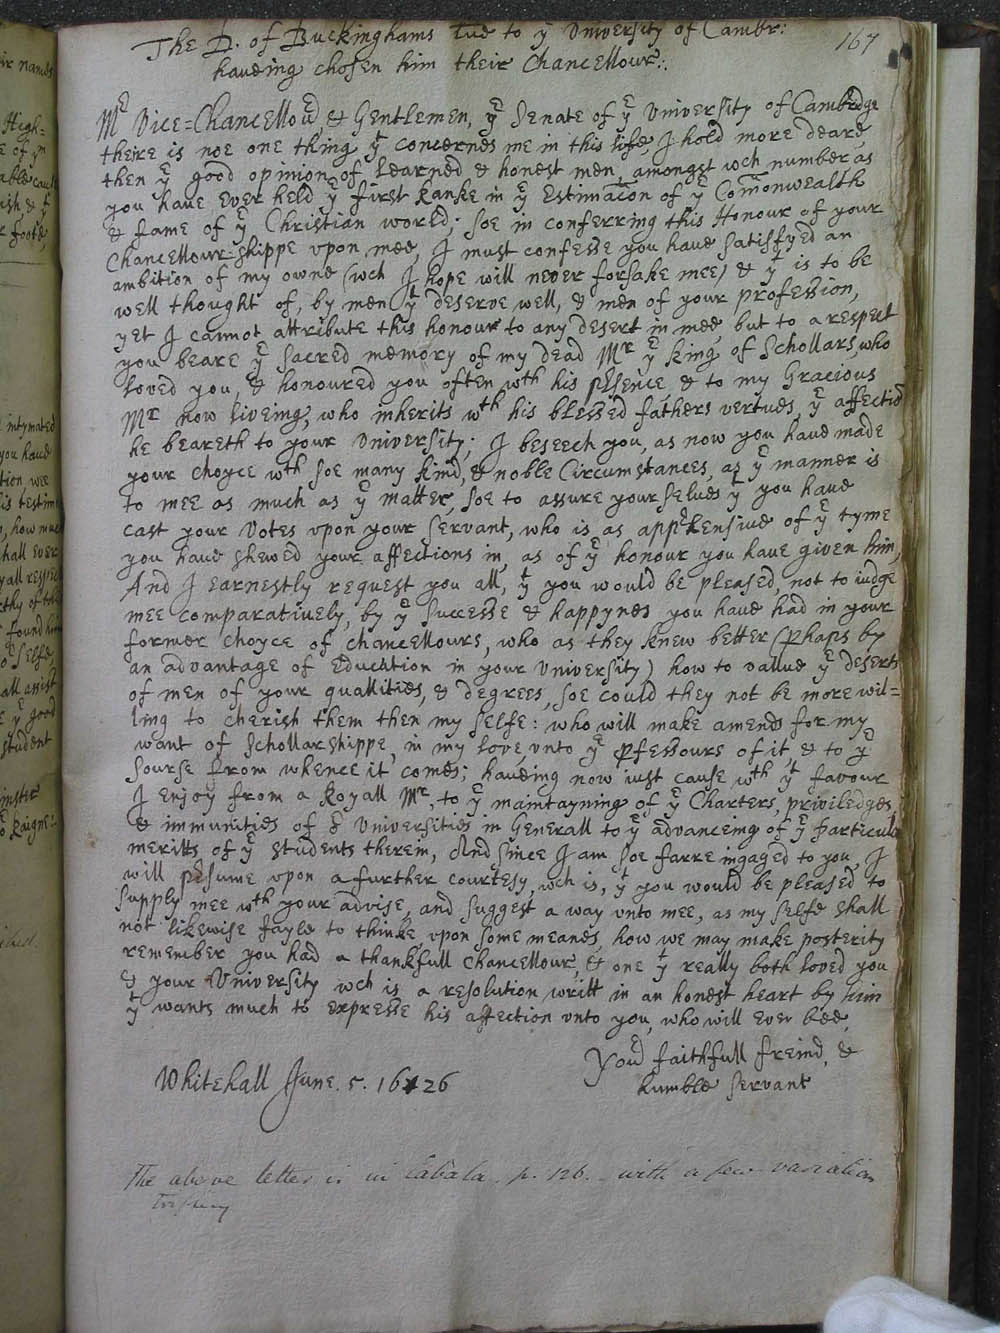 167
The D. of Buckinghams to yᵉ University of Cambr:
haueing chosen him their Chancellour:.
Mʳ Vice=Chancellouʳ & Gentlemen, yᵉ Senate of yᵉ University of Cambrdge
theire is noe one thing yᵗ concernes me in this life I hold more deare,
then yᵉ good opinion of Learned & honest men, amongst wch number as
you haue ever held yᵉ first Ranke in yᵉ Estimacon of yᵉ Comonwealth
& fame of yᵉ Christian world; soe in conferring this Honour of your
Chancellour=shippe vpon mee, I must confesse you haue satisfyed an
ambition of my owne (wch I hope will never forsake mee) & yᵗ is to be
well thought of, by men yᵗ deserve well, & men of your profession,
yet I cannot attribute this honour to any desert in mee, but to a respect
you beare yᵉ sacred memory of my dead Mʳ yᵉ king of Schollars, who
loved you, & honoured you often wᵗʰ his psence, & to my Gracious
Mʳ now liveing, who inherits wᵗʰ his blessed fathers vertues, yᵉ affectiō
he beareth to your Vniversity; I beseech you, as now you haue made
your choyce wᵗʰ soe many kind, & noble Circumstances, as yᵉ manner is
to mee as much as yᵉ matter, soe to assure your selues yᵗ you haue
cast your Votes vpon your servant, who is as apprehensiue of yᵉ tyme
you haue shewed your affections in, as of yᵉ honour you haue given him,
And I earnestly request you all, yᵗ you would be pleased, not to iudge
mee comparatively, by yᵉ successe & happynes you haue had in your
former choyce of chancellours, who as they knew better (phaps by
an advantage of Education in your Vniversity) how to vallue yᵉ deserts
of men of your quallities, & degrees, soe could they not be more wil=
ling to cherish them then my selfe: who will make amends for my
want of Schollarshippe, in my love vnto yᵉ pfessours of it, & to yᵉ
sourse from whence it comes; haueing now iust cause wᵗʰ yᵗ favour
I enjoy from a Royall Mʳ, to yᵉ maintayning of yᵉ Charters, priviledges,
& immunities of Vniversities in Generall to yᵉ advanceing of yᵉ particulr
meritts of yᵉ students therein, And since I am soe farre ingaged to you, I
will psume vpon a further courtesy, wch is, yᵗ you would be pleased to
supply mee wᵗʰ your advise, and suggest a way vnto mee, as my selfe shall
not likewise fayle to thinke vpon some meanes, how we may make posterity
remember you had a thankfull chancellour, & one yᵗ really both loved you
& your Vniversity wch is a resolution writt in an honest heart by him
yᵗ wants much to expresse his affection vnto you, who will ever bee,
Youʳ faithfull freind, &
humble servant
Whitehall June. 5. 1626
The above letter is in Cabala. p. 126. with a few variations